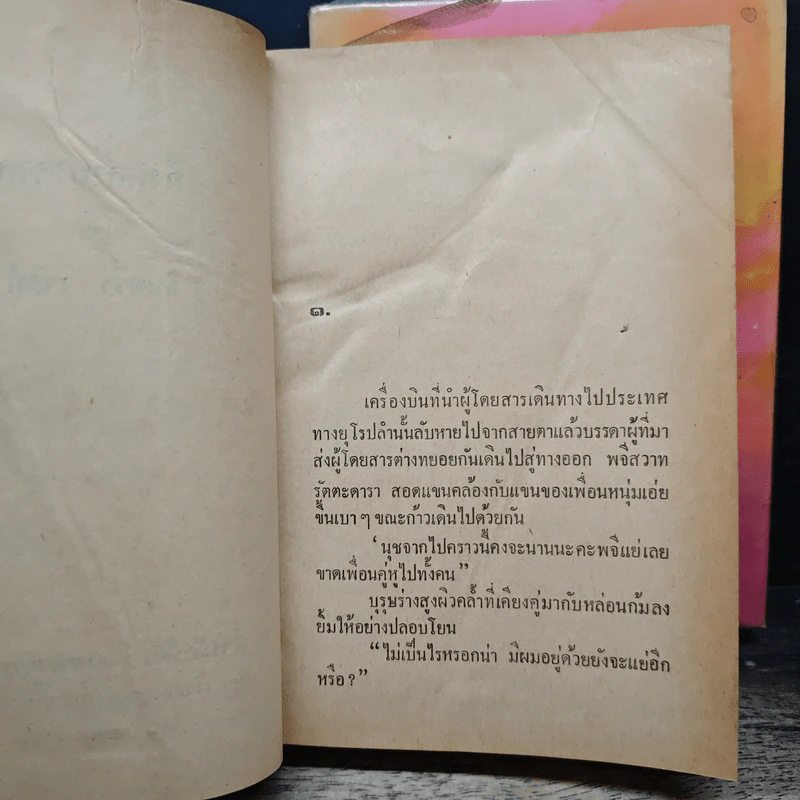 ๑.
เครื่องบินที่นำผู้โดยสารเดินทางไปประเทศ
ทางยุโรปลำนั้นลับหายไปจากสายตาแล้วบรรดาผู้ที่มา
ส่งผู้โดยสารต่างทยอยกันเดินไปสู่ทางออก พจีสวาท
รัตตะดารา สอดแขนคล้องกับแขนของเพื่อนหนุ่มเอ่ย
ขึ้นเบา ๆ ขณะก้าวเดินไปด้วยกัน
‘นุชจากไปคราวนี้คงจะนานนะคะพจีแย่เลย
ขาดเพื่อนคู่หูไปทั้งคน”
บุรุษร่างสูงผิวคล้ำที่เคียงคู่มากับหล่อนก้มลง
ยิ้มให้อย่างปลอบโยน
“ไม่เป็นไรหรอกน่า มีผมอยู่ด้วยยังจะแย่อีก
หรือ?”